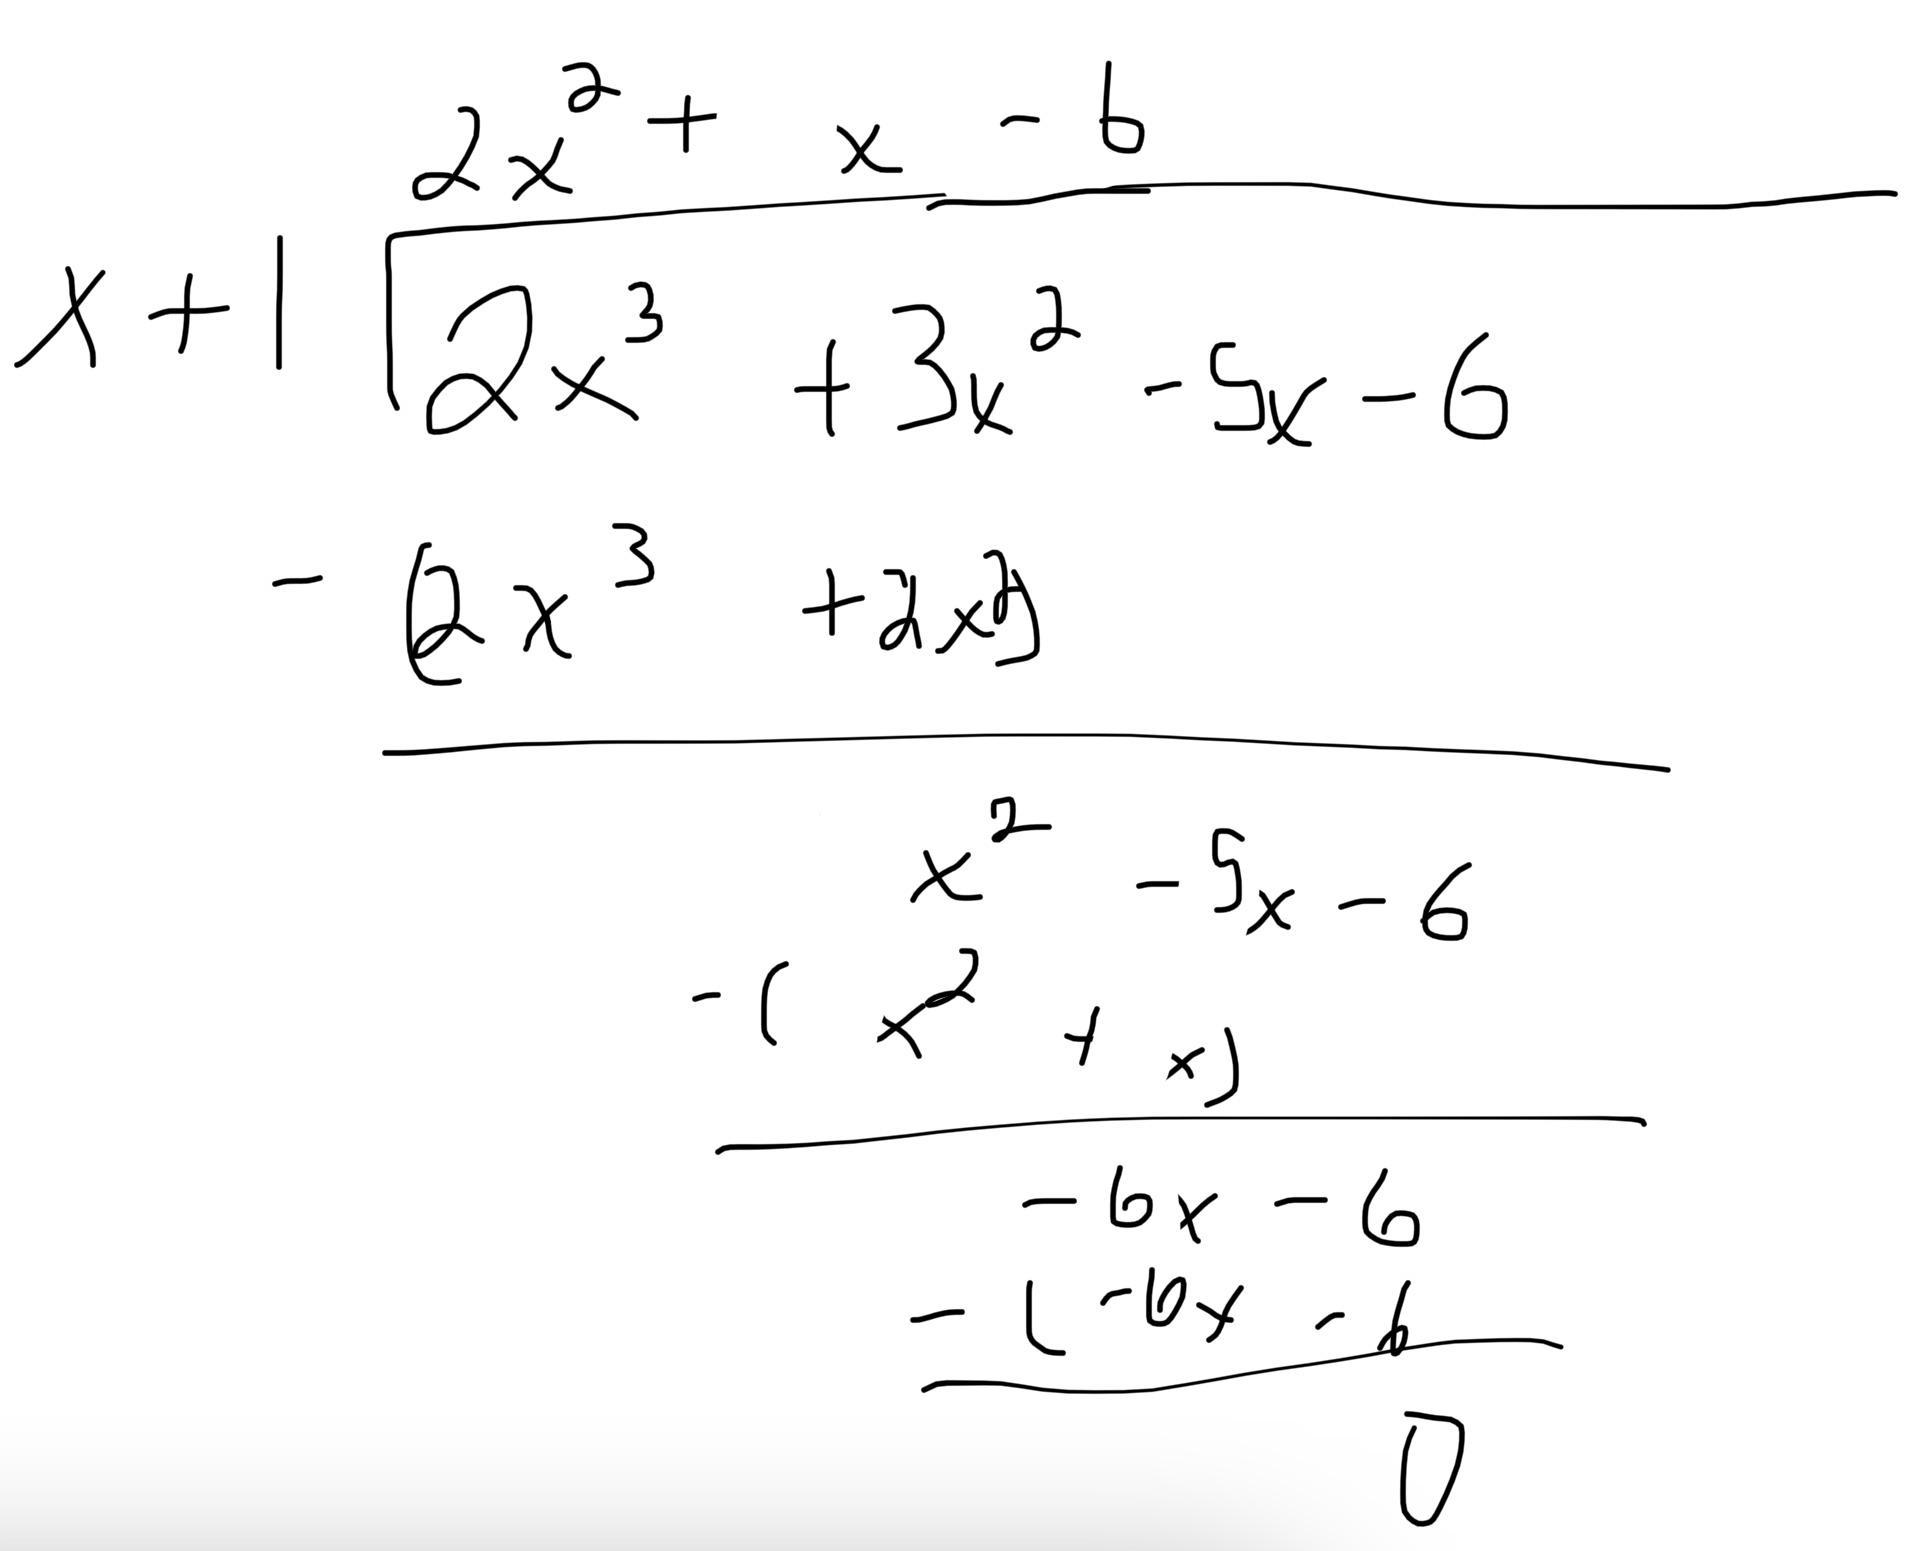 2x² + x - 6
x + 1 2x³ + 3x² - 5x - 6
- (2x³ + 2x²)
x² - 5x - 6
- ( x² + x)
- 6x - 6
- ( -6x - 6
0